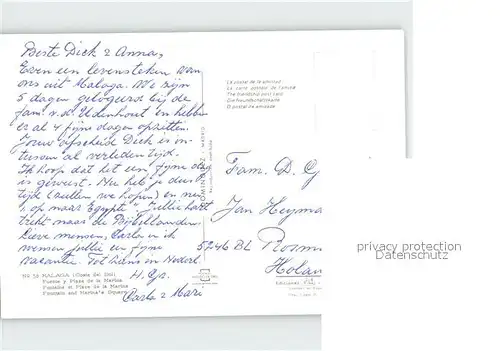 Beste Dick & Anna,
Even een levensteken van
ons uit Malaga. We zijn
5 dagen gelogeerd bij de
fam. v.d. Uldenhout en hebben
er al 4 fijne dagen opzitten.
Jouw afscheid Dick is in-
tussen al verleden tijd.
Ik hoop dat het een fijne dag
is geweest. Nu heb je dus
tijd (zullen we hopen) en
1, op naar Egypte". Jullie hart
trekt naar de Bijbellanden.
Lieve mensen, Carla en ik
wensen jullie een fijne
vacantie. Tot ziens in Nederl.
H. Gr.
Carla & Mari
La postal de la amistad
La carte postale de l'amitié
The friendship post card
Die Freundschaftskarte
O postal da amizade
Fam. D. G
Jan Heyma
5246 BL Rosm
Holan
MALAGA (Costa del Sol)
Fuente y Plaza de la Marina
Fontaine et Place de la Marine
Fountain and Marina's Square
privacy protection
Datenschutz